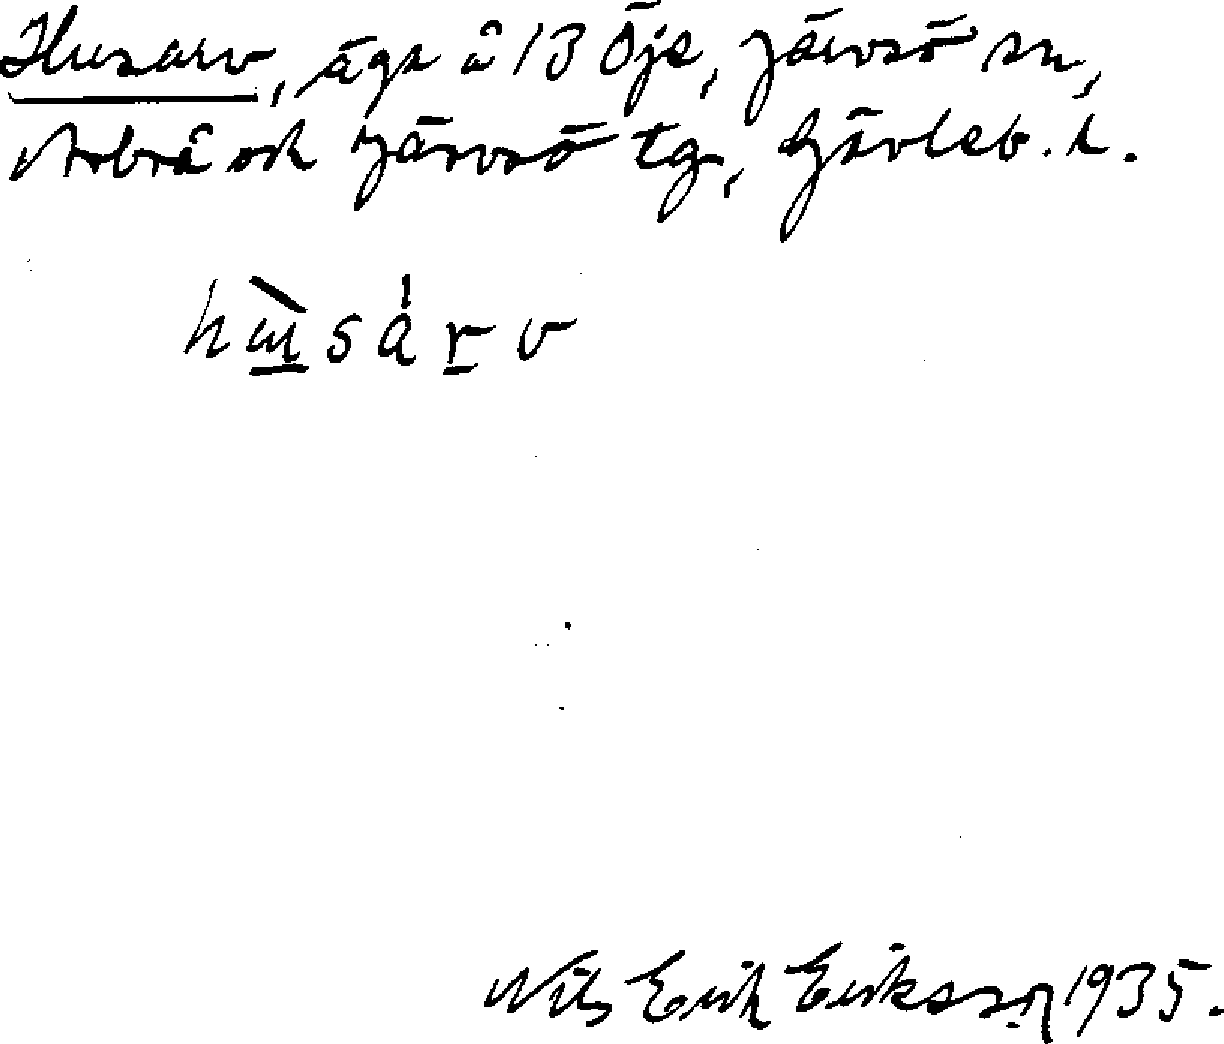 Husarv, äga å 13 Öje, Järvsö sn,
Arbrå och Järvsö tg, Gävleb. l.
hu̠sárv
Nils Erik Eriksson 1935.